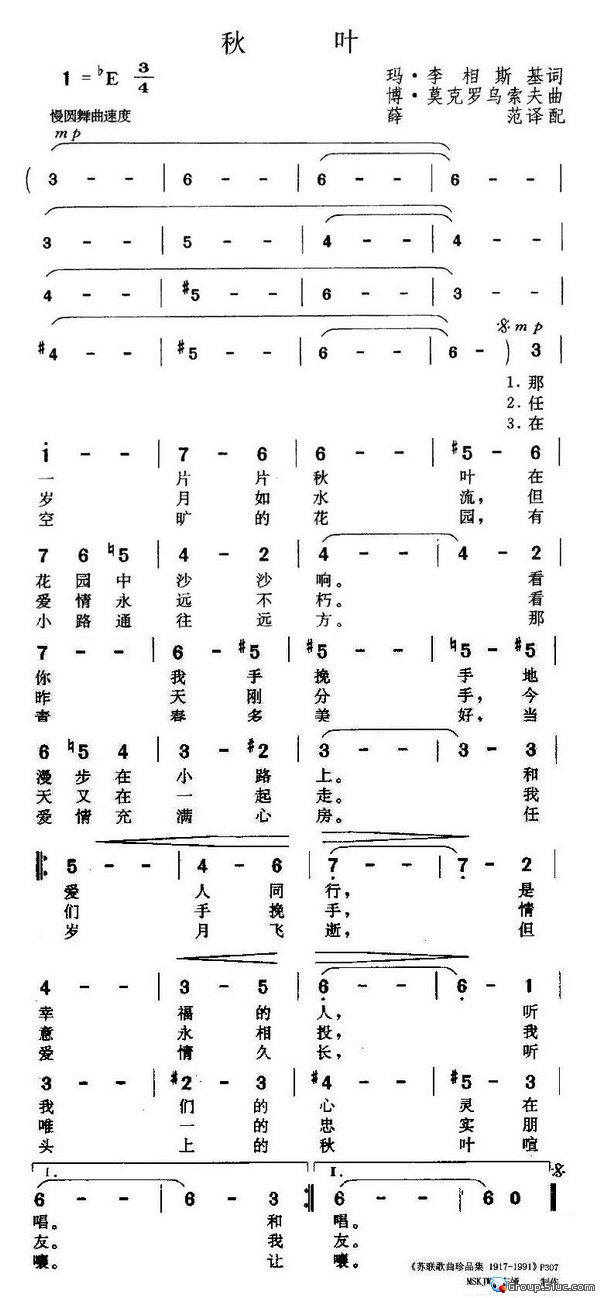 秋 叶
1 = ♭E 3/4
玛·李相斯基词
博·莫克罗乌索夫曲
薛 范译配
慢圆舞曲速度
mp
( 3 - - | 6 - - | 6 - - | 6 - - |
3 - - | 5 - - | 4 - - | 4 - - |
4 - - | #5 - - | 6 - - | 3 - - |
mp
#4 - - | #5 - - | 6 - - | 6 - ) 3 |
1. 那
2. 任
3. 在
1 - - | 7 - 6 | 6 - - | #5 - 6 |
一 片 片 秋 叶 在
岁 月 如 水 流, 但
空 旷 的 花 园, 有
7 6 ♮5 | 4 - 2 | 4 - - | 4 - 2 |
花 园 中 沙 沙 响。 看
爱 情 永 远 不 朽。 看
小 路 通 往 远 方。 那
7 - - | 6 - #5 | #5 - - | ♮5 - #5 |
你 我 手 挽 手 地
昨 天 刚 分 手, 今
青 春 多 美 好, 当
6 ♮5 4 | 3 - #2 | 3 - - | 3 - 3 |
漫 步 在 小 路 上。 和
天 又 在 一 起 走。 我
爱 情 充 满 心 房。 任
5 - - | 4 - 6 | 7 - - | 7 - 2 |
爱 人 同 行, 是
们 手 挽 手, 情
岁 月 飞 逝, 但
4 - - | 3 - 5 | 6 - - | 6 - 1 |
幸 福 的 人, 听
意 永 相 投, 我
爱 情 久 长, 听
3 - - | #2 - 3 | #4 - - | #5 - 3 |
我 们 的 心 灵 在
唯 一 的 忠 实 朋
头 上 的 秋 叶 喧
I. II.
6 - - | 6 - 3 :| 6 - - | 6 0 ||
唱。 和 唱。
友。 我 友。
嚷。 让 嚷。
《苏联歌曲珍品集 1917-1991》P307
MSKJW
制作
group.51uc.com